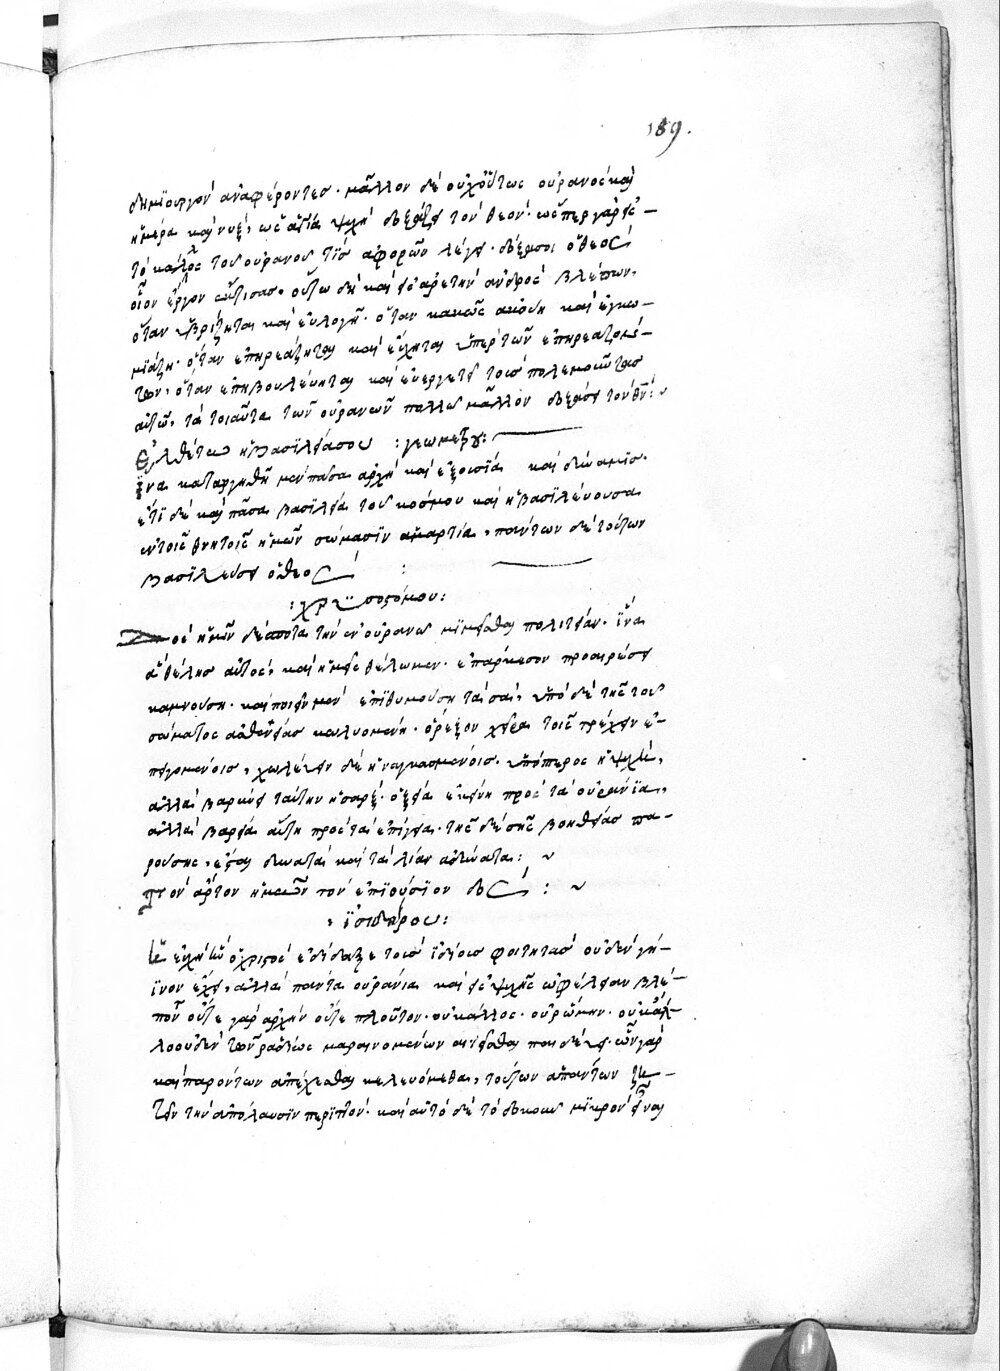 189.
δημϊουργὸν ἀναφέροντες· μᾶλλον δὲ οὐχ οὕτως οὐρανὸς καὶ
ἡμέρα καὶ νὺξ, ὡς ἁγία ψυχὴ δοξάζει τὸν θεόν· ὥσπερ γὰρ εἰς
τὸ κάλλος τοῦ οὐρανοῦ τὶς ἀφορῶν λέγει· δόξασοι ὁ θεὸς
οἷον ἔργον οὕτω δὴ καὶ εἰς ἀρετὴν ἀνδρὸς βλέπων,
ὅταν ὑβρίζηται καὶ εὐλογῇ· ὅταν κακῶς ἀκούη καὶ ἐγκω-
μιάζη· ὅταν ἐπηρεάζηται καὶ εὔχηται ὑπὲρ τῶν ἐπηρεαζομέ-
των, ὅταν ἐπιβουλεύηται καὶ εὐεργετεῖ τοῖς πολεμοῦντας
αὐτῶ, τὰ τοιαῦτα τῶν οὐρανῶν πολλῶ μᾶλλον δοξάζει τὸν θν:
Ἐλθέτω ἡ βασϊλεία σου :
ἵνα καταργηθῆ μὲν πᾶσα ἀρχὴ καὶ ἐξουσία καὶ δύναμϊς·
ἔτϊ δὲ καὶ πᾶσα βασϊλεία τοῦ κόσμου καὶ ἡ βασϊλεύουσα
ἐν τοῖς θνητοῖς ἡμῶν σώμασϊν ἁμαρτία, πάντων δὲ τούτων
βασϊλεύσει ὁ θεὸς :
: χρυσοστόμου :
Δὸς ἡμῖν δέσποτα τὴν ἐν οὐρανῶ μϊμεῖσθαι πολιτείαν· ἵνα
ἃ θέλης αὐτὸς, καὶ ἡμεῖς θέλωμεν· ἐπάρκεσον προαιρέσει
καμνούση· καὶ ποιεῖν μὲν ἐπϊθυμούση τὰ σὰ, ὑπὸ δὲ τῆς τοῦ
σώματος ἀσθενείας κωλυομένη· ὄρεξον χεῖρα τοῖς τρέχειν ἐ-
πειγομένοις, χωλεύειν δὲ ἠναγκασμένοις· ὑπόπτερος ἡ ψυχὴ,
ἀλλὰ βαρύνει ταύτην ἡ σάρξ· ὀξεῖα ἐκείνη πρὸς τὰ οὐράνϊα,
ἀλλὰ βαρεῖα αὕτη πρὸς τὰ ἐπίγεια· τῆς δὲ σῆς βοηθείας πα-
ρούσης, ἔσται δυνατὰ καὶ τὰ λίαν ἀδύνατα :
τὸν ἄρτον ἡμῶν τὸν ἐπϊούσϊον δὸς :
: ϊσιδώρου :
εὐχὴν ὁ χριστὸς ἐδίδαξε τοὺς ϊδίους φοιτητὰς οὐδὲν γή-
ϊνον ἔχει, ἀλλὰ πάντα οὐράνια καὶ εἰς ψυχῆς ὠφέλειαν βλέ-
πον οὔτε γὰρ ἀρχὴν οὔτε πλοῦτον· οὐ κάλλος· οὐ ῥώμην· οὐκ ἄλ-
λο οὐδὲν τῶν ῥαδίως μαραινομένων αἰτεῖσθαι παιδεύει· ὧν γὰρ
καὶ παρόντων ἀπέχεσθαι κελευόμεθα, τούτων ἀπάντων ζη-
τεῖν τὴν ἀπόλαυσϊν περϊττόν· καὶ αὐτὸ δὲ τὸ δοκοῦν μϊκρὸν εἶναι